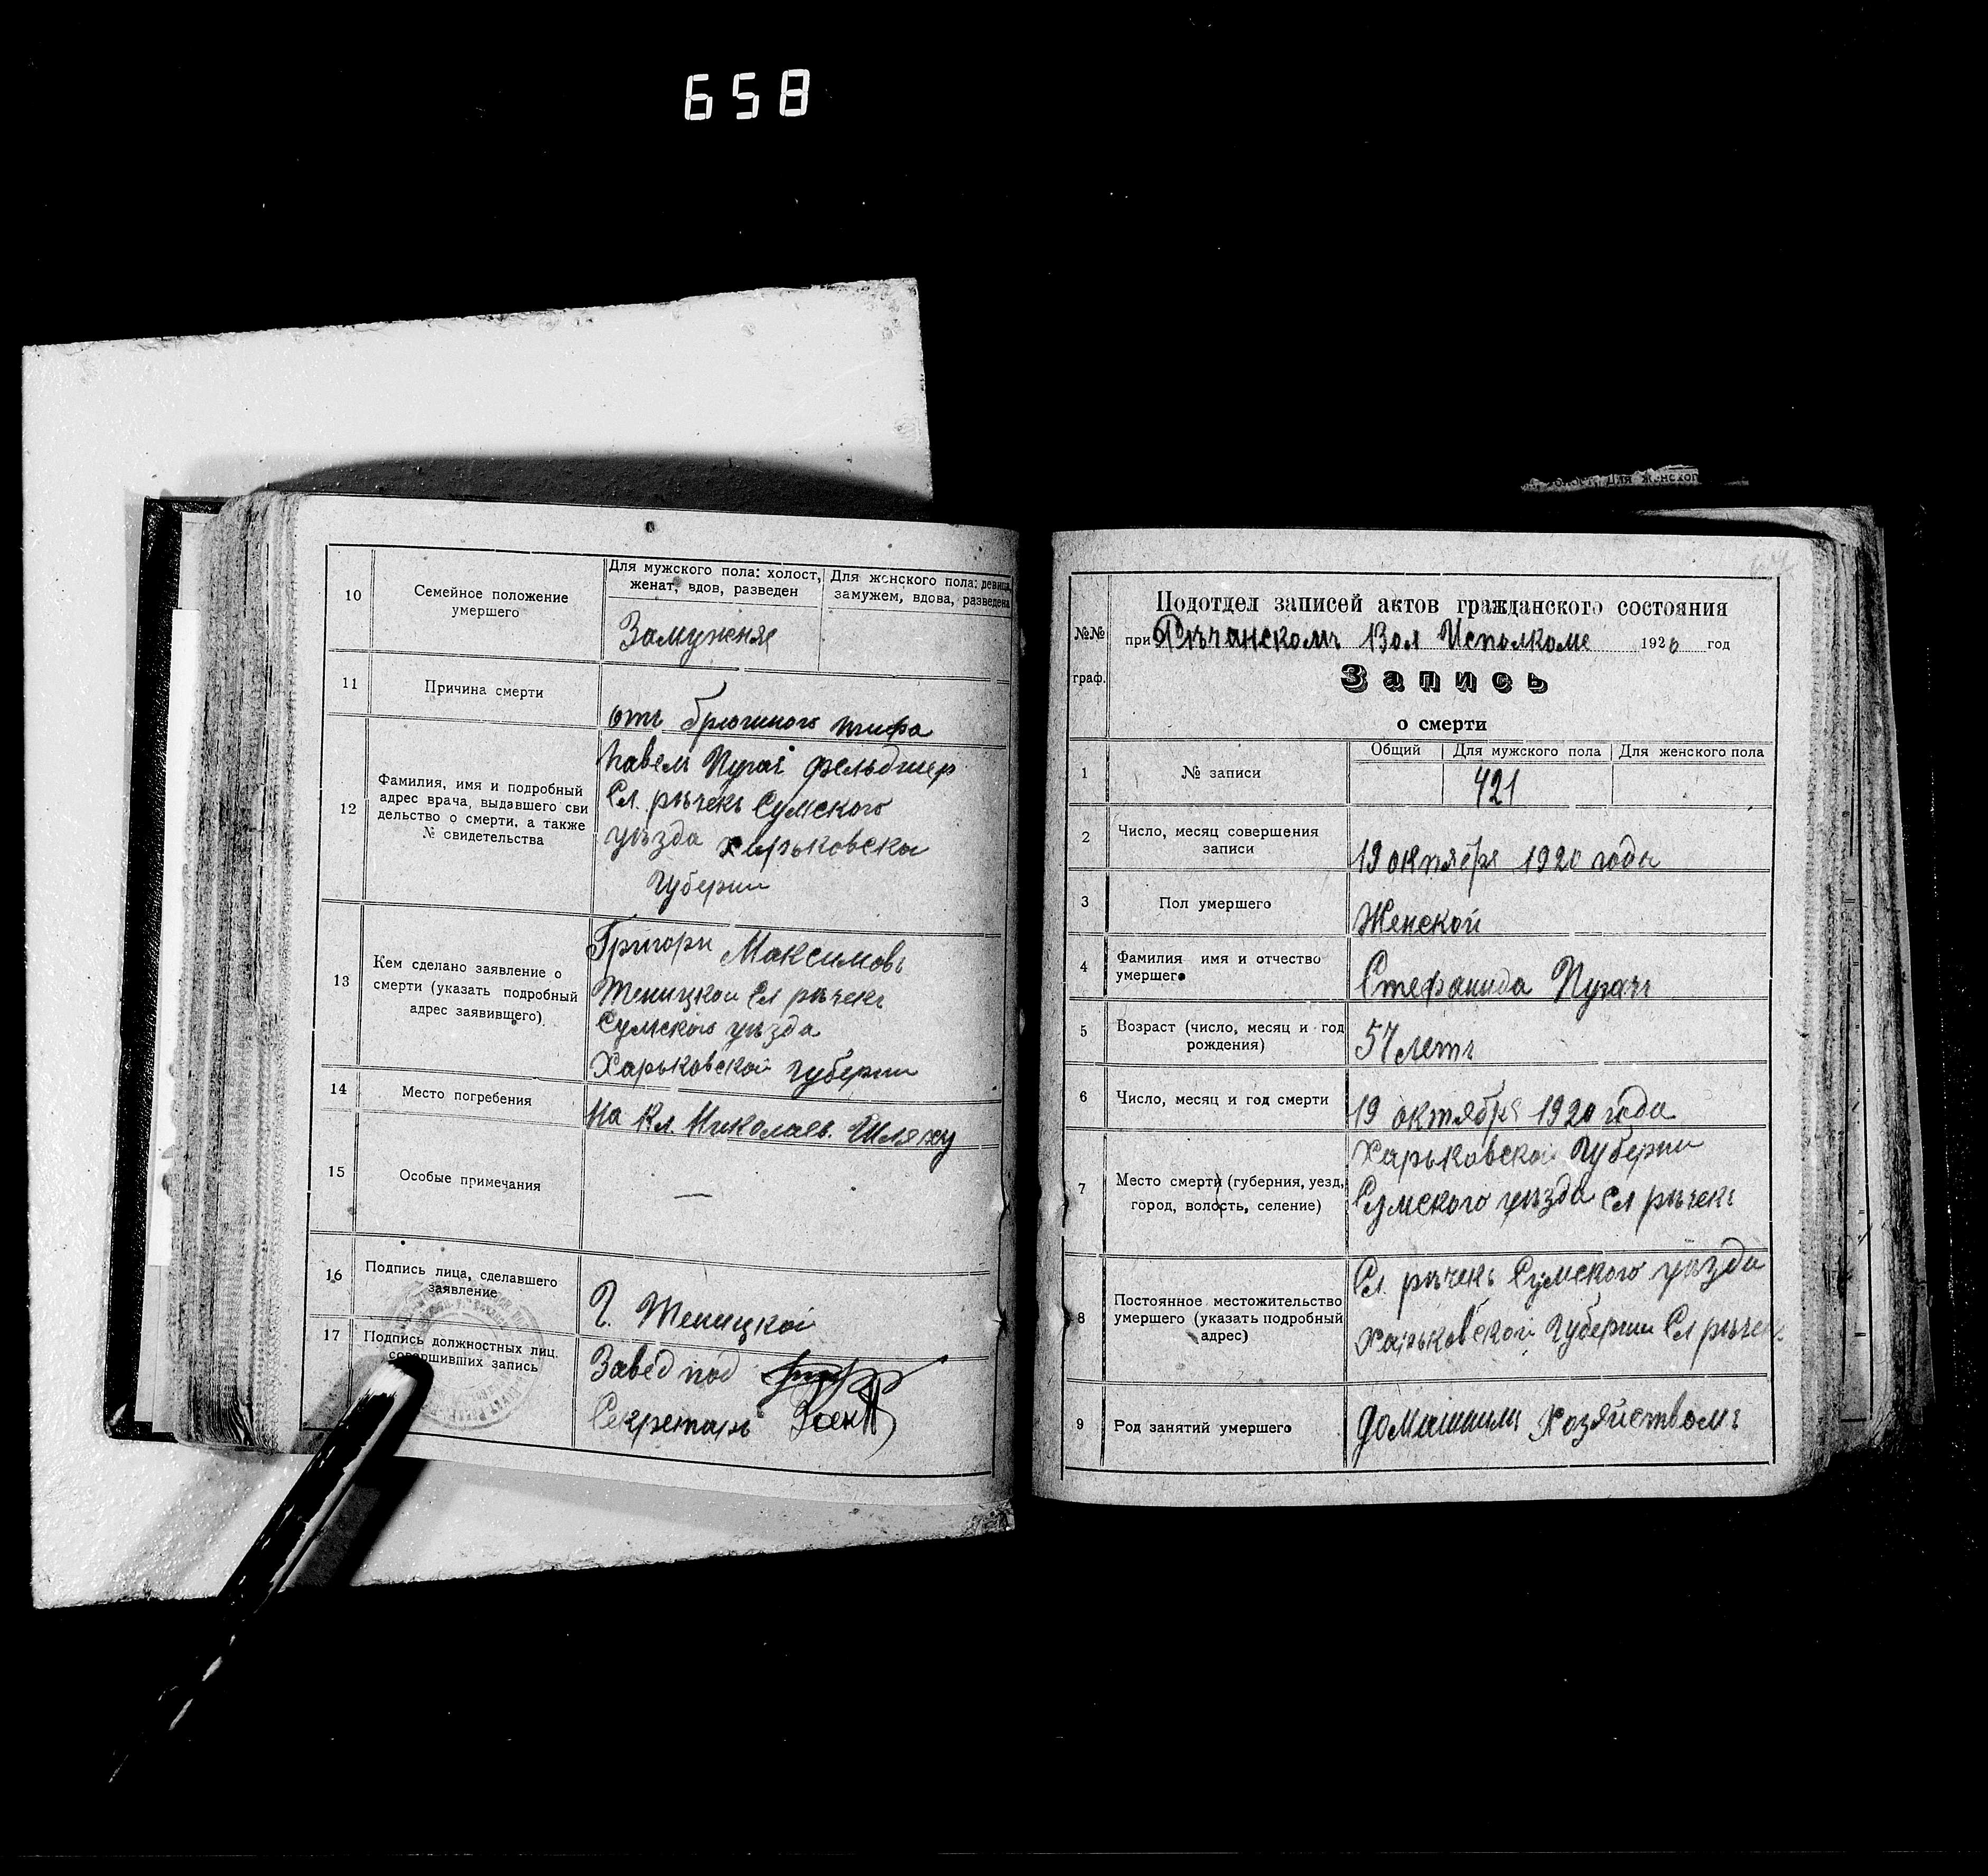 658
10
Семейное положение
умершего
Для мужского пола: холост,
женат, вдов, разведен
Для женского пола: девица,
замужем, вдова, разведена
Замужняя
11
Причина смерти
отъ брюшного тифа
12
Фамилия, имя и подробный
адрес врача, выдавшего сви
дельство о смерти, а также
№ свидетельства
Павелъ Пугач фельдшер
Сл. рѣчекъ Сумского
уѣзда харьковска
Губерни
13
Кем сделано заявление о
смерти (указать подробный
адрес заявившего)
Григори Максимовъ
Теницкой Сл рѣчекъ
Сумского уѣзда
Харьковской Губернии
14
Место погребения
На Кл. Николаев. Шляху
15
Особые примечания
—
16
Подпись лица, сделавшего
заявление
Г. Теницкой
17
Подпись должностных лиц.
совершивших запись
Завед под
Секретарь
№№
граф.
Подотдел записей актов гражданского состояния
при Рѣчанскомъ Вол Исполкоме 1920 год
Запись
о смерти
1
№ записи
Общий
Для мужского пола
Для женского пола
421
2
Число, месяц совершения
записи
19 октября 1920 года
3
Пол умершего
Женской
4
Фамилия имя и отчество
умершего
Стефанида Пугачъ
5
Возраст (число, месяц и год
рождения)
57 летъ
6
Число, месяц и год смерти
19 октября 1920 года
7
Место смерти (губерния, уезд,
город, волость, селение)
Харьковской Губернии
Сумского уѣзда сл рѣчекъ
8
Постоянное местожительство
умершего (указать подробный
адрес)
Сл. рѣчекъ Сумского уѣзда
Харьковской Губернии Сл рѣчекъ
9
Род занятий умершего
домашнимъ Хозяйствомъ